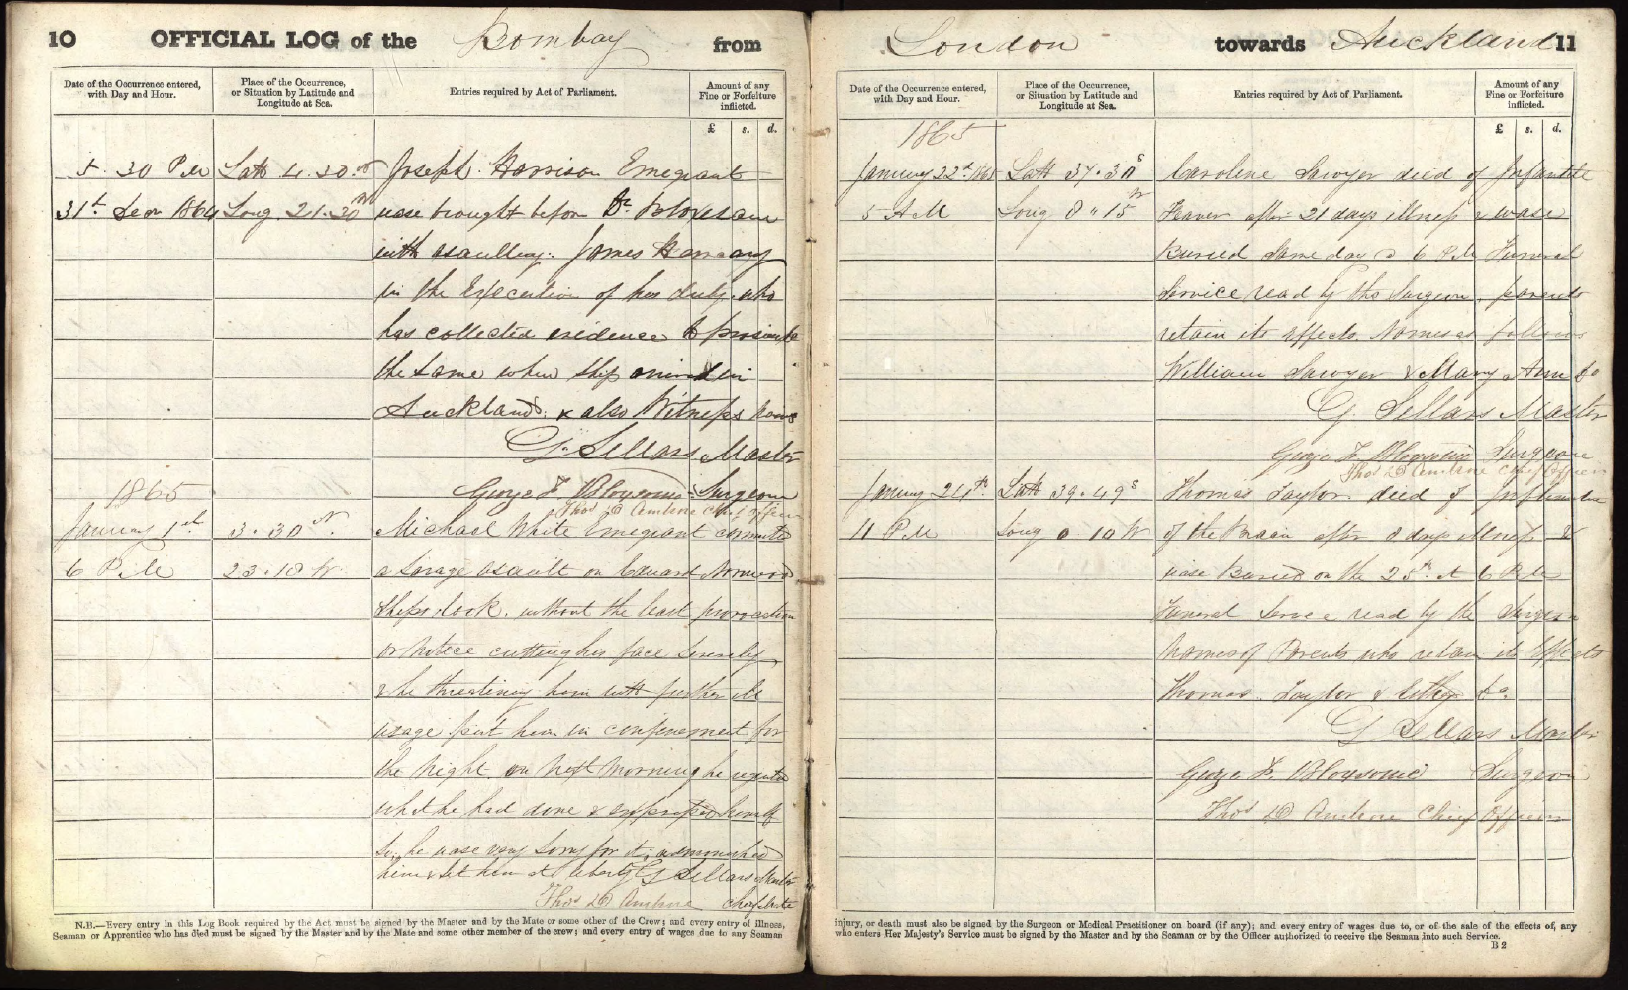 10 OFFICIAL LOG of the Bombay from
Date of the Occurrence entered, with Day and Hour.
Place of the Occurrence, or Situation by Latitude and Longitude at Sea.
Entries required by Act of Parliament.
Amount of any Fine or Forfeiture inflicted.
£ s. d.
5.30 P.M Latt 4.30 N Joseph Harrison Emegrant
31st 1864 Long 21.30 W wase brought before Dr
with asaulting James
in the Execution of his duty who
has collected evidence to
the same when ship arrived in
Auckland & also Witness
G. Sellars Master
1865 George F Surgeon
Thos D Chief Officer
January 1st 3.30 N. Michael White Emegrant committed
6 P.M 23.18 W. a Savage assault on Edward Norwood
Ships cook, without the least provocation
or Notice cutting his face severely
& he threatening him with further ill
usage put him in confinement for
the Night, on Next Morning he regreted
what he had done & expressed himself
so, he wase very Sorry for it, admonished
him & let him at liberty G Sellars Master
Thos D Chief Mate
N.B.—Every entry in this Log Book required by the Act must be signed by the Master and by the Mate or some other of the Crew; and every entry of illness,
Seaman or Apprentice who has died must be signed by the Master and by the Mate and some other member of the crew; and every entry of wages due to any Seaman
London towards Auckland 11
Date of the Occurrence entered, with Day and Hour.
Place of the Occurrence, or Situation by Latitude and Longitude at Sea.
Entries required by Act of Parliament.
Amount of any Fine or Forfeiture inflicted.
£ s. d.
1865
January 22nd 1865 Latt 37.38 S Caroline Sawyer died of Infantile
5 A M Long 8 " 15 W after 21 days illness & wase
Buried same day @ 6 P.M Funeral
Service read by the Surgeon, parents
retain its effects. Names as follows
William Sawyer & Mary Ann Do
G Sellars Master
George F Surgeon
Thos D Chief Officer
January 24th Latt 39.49 S Thomas Taylor died of Inflamation
11 P.M Long 0 10 W of the Brain after 8 days illness &
wase Buried on the 25th at 6 P.M
Funeral Service read by the Surgeon
Names of Parents who retain its Effects
Thomas Taylor & Esther Do
G Sellars Master
George F. Surgeon
Thos D Chief Officer
injury, or death must also be signed by the Surgeon or Medical Practitioner on board (if any); and every entry of wages due to, or of the sale of the effects of, any
who enters Her Majesty's Service must be signed by the Master and by the Seaman or by the Officer authorized to receive the Seaman into such Service.
B 2